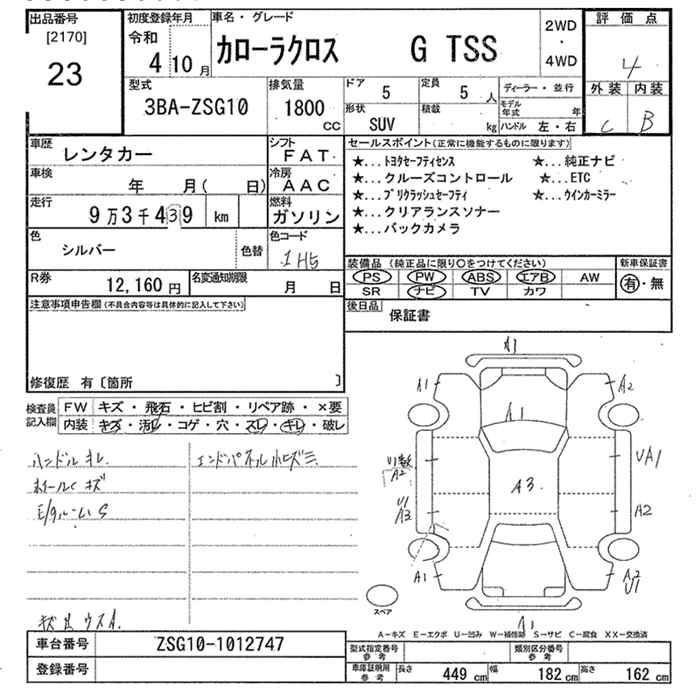 出品番号
[2170]
23
初度登録年月
令和
4 10月
車名・グレード
カローラクロス G TSS
2WD
・
4WD
評価点
4
外装 内装
C B
型式
3BA-ZSG10
排気量
1800
cc
ドア
5
定員
5人
形状
SUV
積載
kg
ディーラー・並行
モデル年式 年
ハンドル 左・右
車歴
レンタカー
シフト
FAT
車検
年 月( 日)
冷房
AAC
走行
9万3千439 km
燃料
ガソリン
色
シルバー
色替
色コード
1H5
R券
12,160円
名変通知期限
月 日
セールスポイント(正常に機能するものに限ります)
★...トヨタセーフティセンス ★...純正ナビ
★...クルーズコントロール ★...ETC
★...プリクラッシュセーフティ ★...ウインカーミラー
★...クリアランスソナー
★...バックカメラ
装備品(純正品に限り○をつけてください)
PS PW ABS エアB AW
SR ナビ TV カワ
新車保証書
有・無
後日品
保証書
注意事項申告欄(不具合内容等は具体的に記入して下さい)
修復歴 有〔箇所 〕
検査員
記入欄
FW キズ・飛石・ヒビ割・リペア跡・×要
内装 キズ・汚レ・コゲ・穴・スレ・キレ・破レ
ハンドル キレ
エンドパネル
ホイール キズ
キズ 凹 ウスA.
A1
A1
A2
A1
U1
A2
UA1
A3
U1
A3
A2
A1
A2
U1
A1
スペア
A－キズ E－エクボ U－凹み W－補修跡 S－サビ C－腐食 XX－交換済
車台番号
ZSG10-1012747
登録番号
型式指定番号
参考
類別区分番号
参考
車庫証明用
参考
長さ 449 cm 幅 182 cm 高さ 162 cm